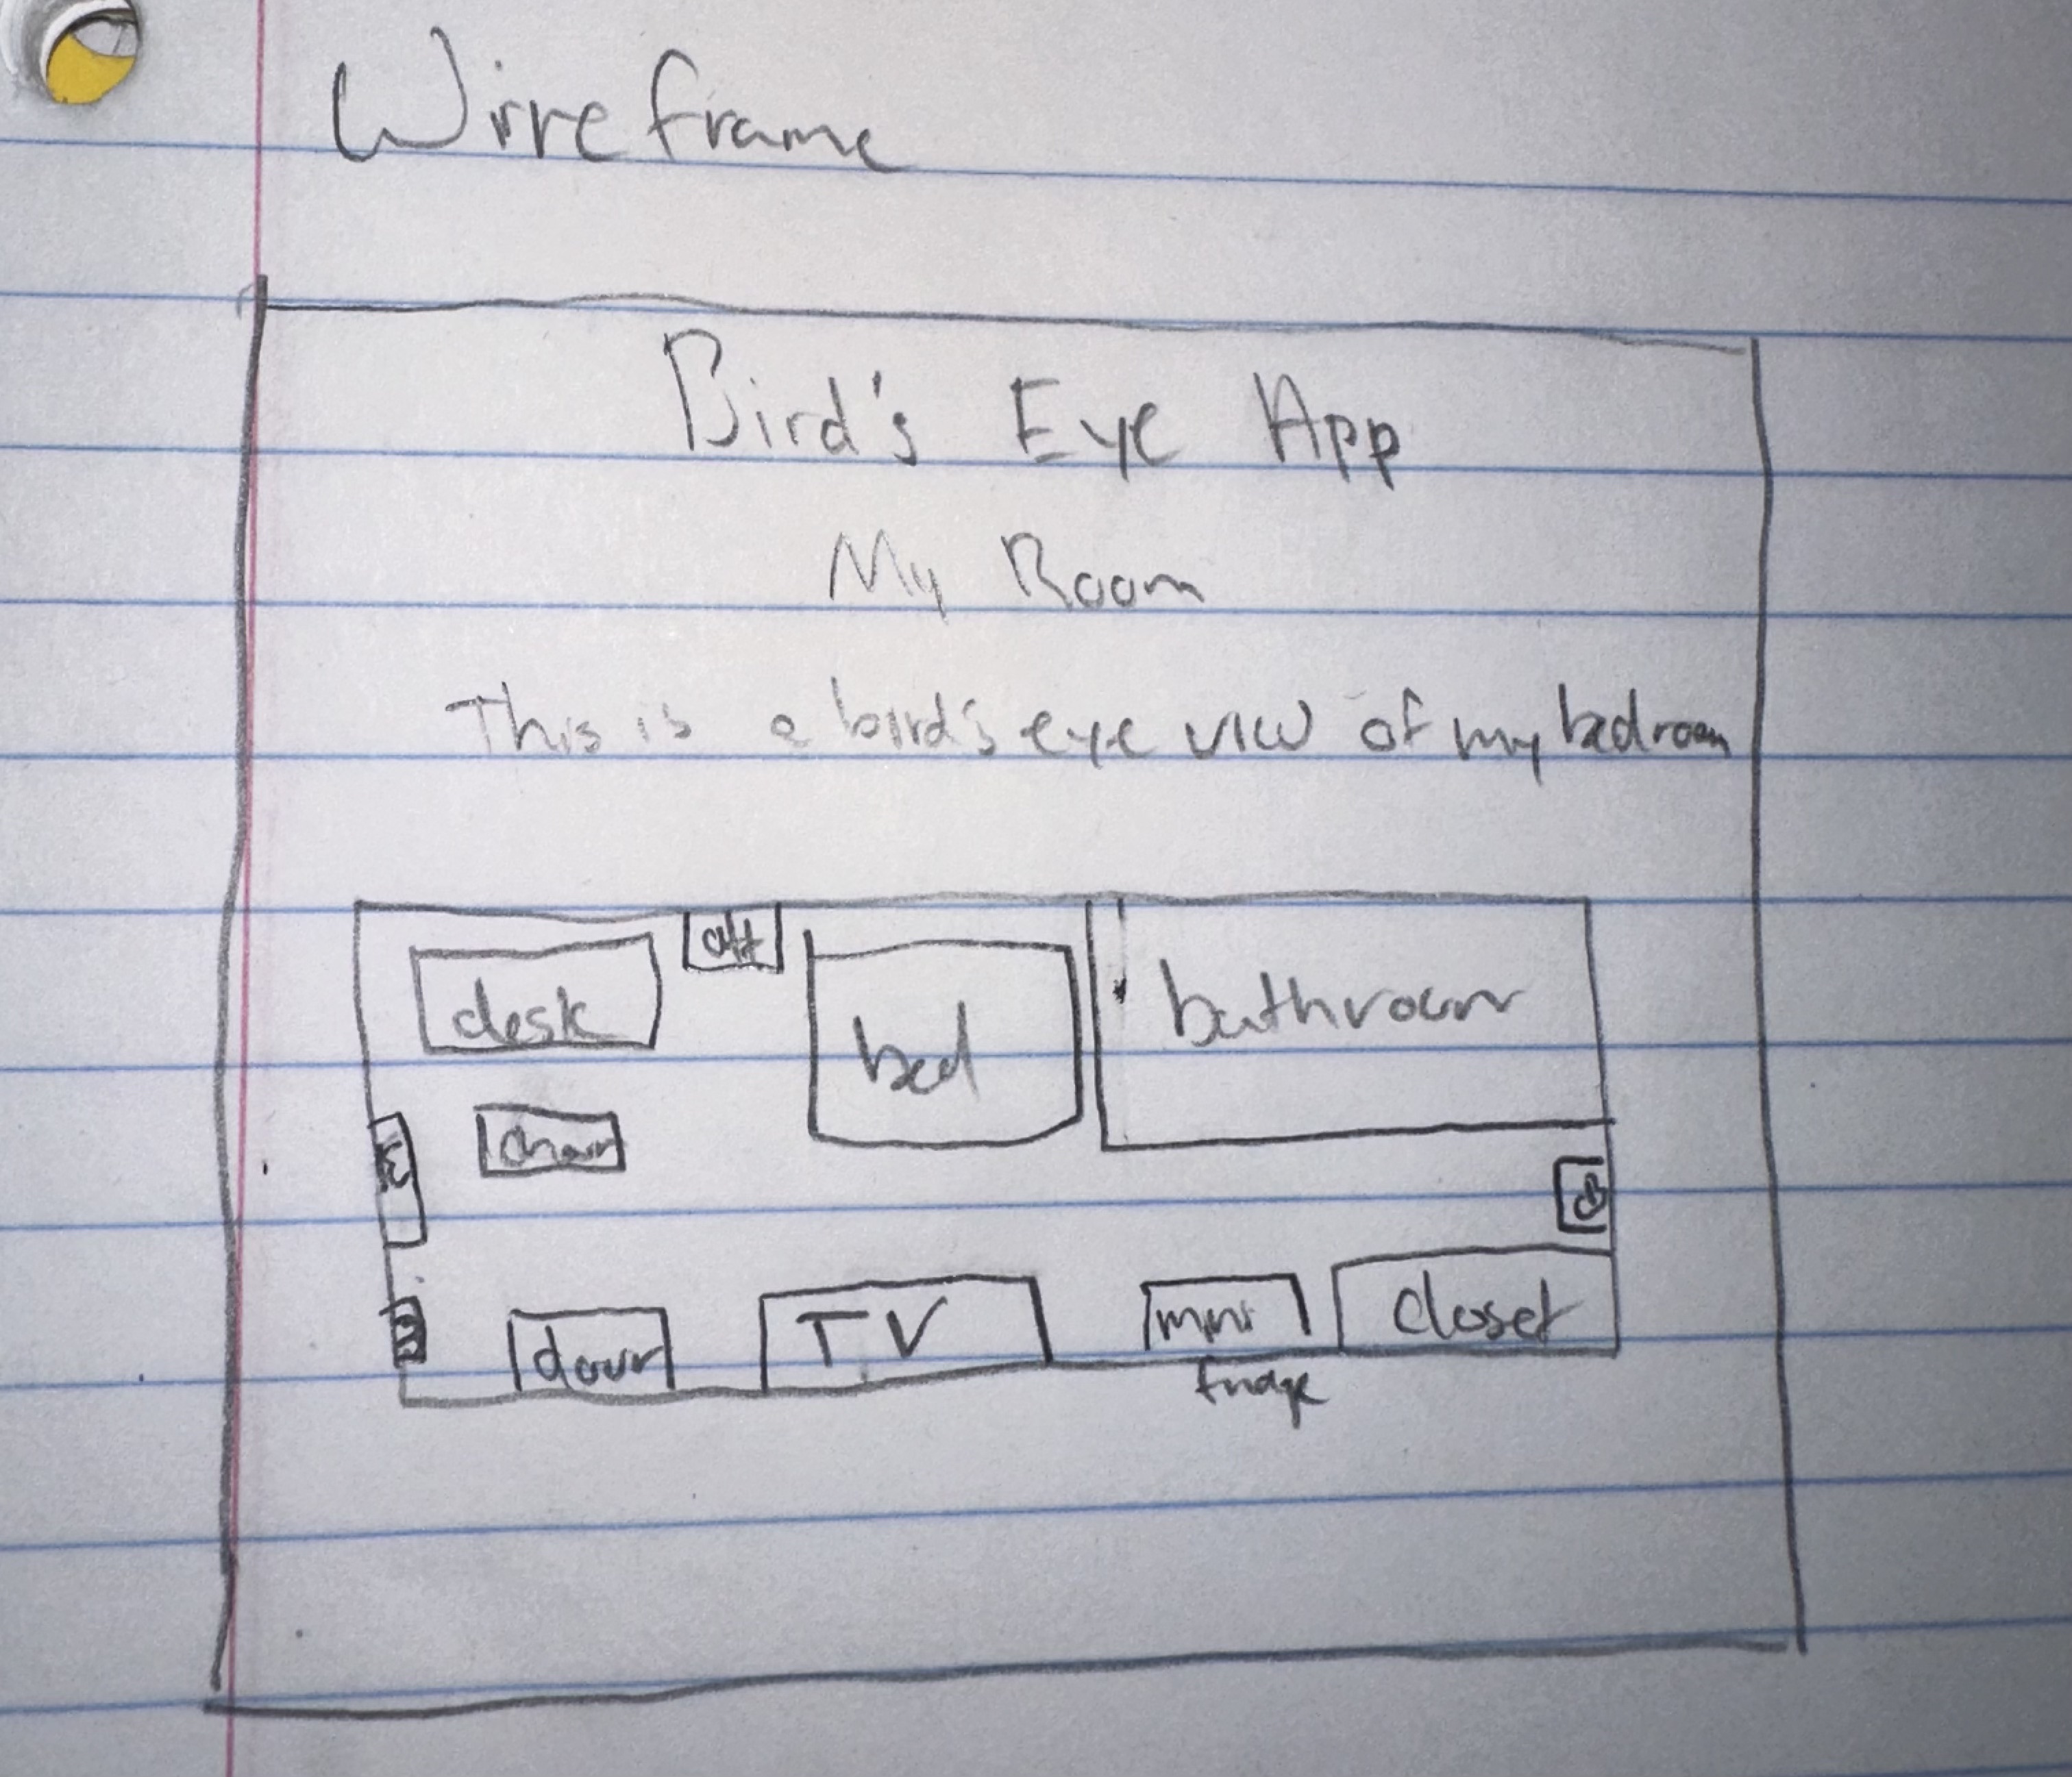 Wireframe
Bird's Eye App
My Room
This is a bird's eye view of my bedroom
desk
bed
bathroom
chair
door
TV
mini
closet
fridge